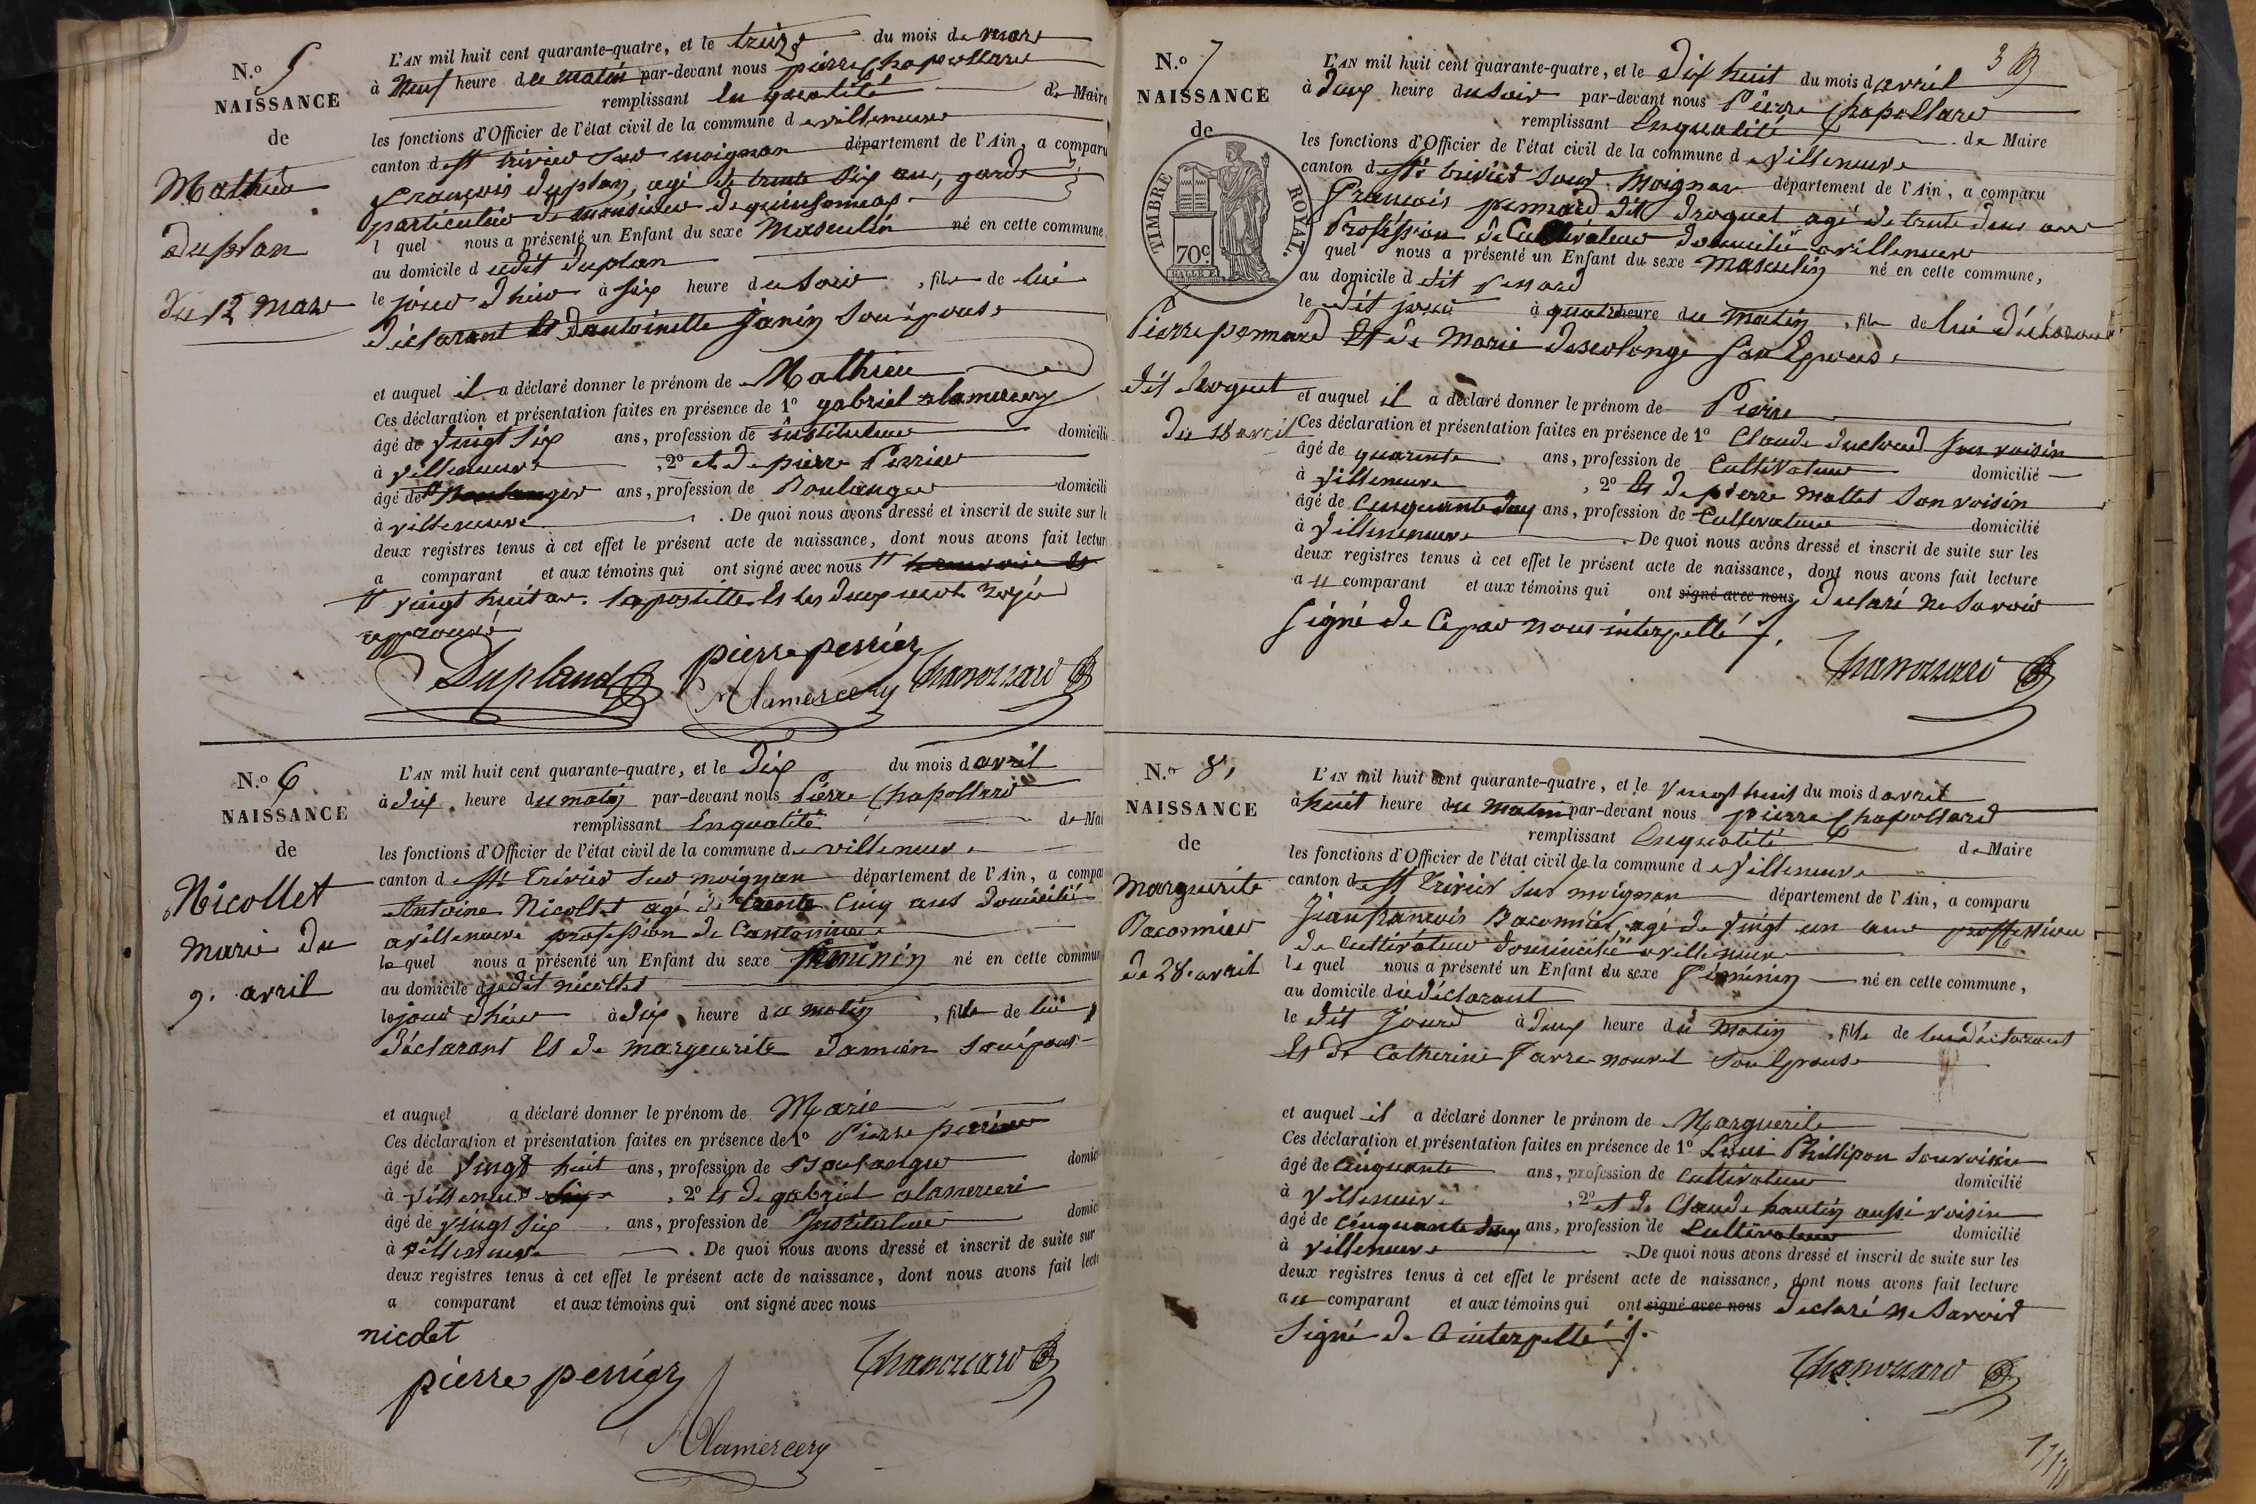 N.º 5
NAISSANCE
de
Mathieu
duplan
du 12 mars
L'AN mil huit cent quarante-quatre, et le treize du mois de mars
à neuf heure du matin par-devant nous pierre
remplissant en qualité de Maire
les fonctions d'Officier de l'état civil de la commune de villeneuve
canton de st trivier sur moignan département de l'Ain, a comparu
françois duplan, agé de trente six ans, garde
particulier de monsieur
l quel nous a présenté un Enfant du sexe Masculin né en cette commune
au domicile dudit duplan
le jour d'hier à six heure du soir, fils de lui
déclarant et d'antoinette janin son épouse
et auquel il a déclaré donner le prénom de Mathieu
Ces déclaration et présentation faites en présence de 1º gabriel alamercery
âgé de vingt six ans, profession de instituteur domicilié
à villeneuve, 2º et de pierre Perrier
âgé de ans, profession de Boulanger domicilié
à villeneuve. De quoi nous avons dressé et inscrit de suite sur le
deux registres tenus à cet effet le présent acte de naissance, dont nous avons fait lectur
a comparant et aux témoins qui ont signé avec nous
vingt huit an. l'apostille et les deux mots rayé
approuvé
Dupland
pierre perrier
Alamercery
N.º 6
NAISSANCE
de
Nicollet
Marie du
9. avril
L'AN mil huit cent quarante-quatre, et le dix du mois d'avril
à dix heure du matin par-devant nous Pierre
remplissant En qualité de Mai
les fonctions d'Officier de l'état civil de la commune de villeneuve
canton de st Trivier sur moignan département de l'Ain, a compa
Antoine Nicollet agé de trente cinq ans domicilié
a villeneuve profession de Cantonnier
le quel nous a présenté un Enfant du sexe féminin né en cette commun
au domicile dudit nicollet
le jour d'hier à dix heure du matin, fille de lui
déclarant et de marguerite damien son épouse
et auquel a déclaré donner le prénom de Marie
Ces déclaration et présentation faites en présence de 1º Pierre perrier
âgé de vingt huit ans, profession de Boulanger domic
à villeneuve, 2º et de gabriel alamerceri
âgé de vingt six ans, profession de Instituteur domic
à villeneuve. De quoi nous avons dressé et inscrit de suite sur
deux registres tenus à cet effet le présent acte de naissance, dont nous avons fait lectu
a comparant et aux témoins qui ont signé avec nous
nicolet
pierre perrier
Alamercery
N.º 7
NAISSANCE
de
TIMBRE ROYAL.
70c
Pierre pommard
dit droguet
du 18 avril
L'AN mil huit cent quarante-quatre, et le dix huit du mois d'avril
à deux heure du soir par-devant nous Pierre
remplissant En qualité de Maire
les fonctions d'Officier de l'état civil de la commune de villeneuve
canton de st trivier sur Moignan département de l'Ain, a comparu
François dit droguet agé de trente deux ans
Profession de Cultivateur domicilié a villeneuve
quel nous a présenté un Enfant du sexe Masculin né en cette commune,
au domicile d dit
le dit jour à quatre heure du matin, fils de lui déclarant
Et de Marie son Epouse
et auquel il a déclaré donner le prénom de Pierre
Ces déclaration et présentation faites en présence de 1º Claude son voisin
âgé de quarente ans, profession de Cultivateur domicilié
à villeneuve, 2º Et de pierre Mallet son voisin
âgé de cinquante deux ans, profession de Cultivateur domicilié
à villeneuve. De quoi nous avons dressé et inscrit de suite sur les
deux registres tenus à cet effet le présent acte de naissance, dont nous avons fait lecture
au comparant et aux témoins qui ont signé avec nous déclaré ne savoir
signé de ce par nous interpellé
N.º 8
NAISSANCE
de
Marguerite
Baconnier
de 28. avril
L'AN mil huit cent quarante-quatre, et le vingt huit du mois d'avril
à huit heure du matin par-devant nous pierre
remplissant En qualité de Maire
les fonctions d'Officier de l'état civil de la commune de villeneuve
canton de st Trivier sur moignan département de l'Ain, a comparu
Jean françois Baconnier, agé de vingt un ans proffession
de cultivateur domicilié a villeneuve
le quel nous a présenté un Enfant du sexe Féminin né en cette commune,
au domicile du déclarant
le dit Jour à deux heure du matin, fille de lui déclarant
Et de Catherine son Epouse
et auquel il a déclaré donner le prénom de Marguerite
Ces déclaration et présentation faites en présence de 1º Louis Phillipon son voisin
âgé de cinquante ans, profession de cultivateur domicilié
à villeneuve, 2º et de Claude aussi voisin
âgé de cinquante deux ans, profession de Cultivateur domicilié
à villeneuve. De quoi nous avons dressé et inscrit de suite sur les
deux registres tenus à cet effet le présent acte de naissance, dont nous avons fait lecture
au comparant et aux témoins qui ont signé avec nous déclaré ne savoir
signé de ce interpellé